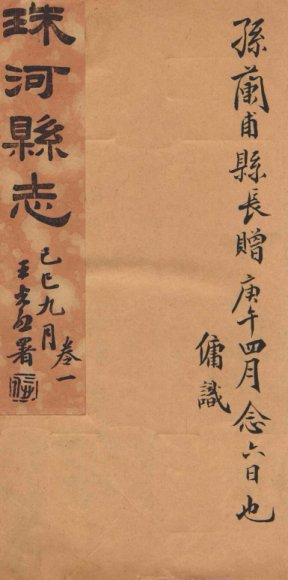 孫蘭甫縣長贈庚午四月念六日也
傭識
珠河縣志
卷一
己巳九月
王光烈署